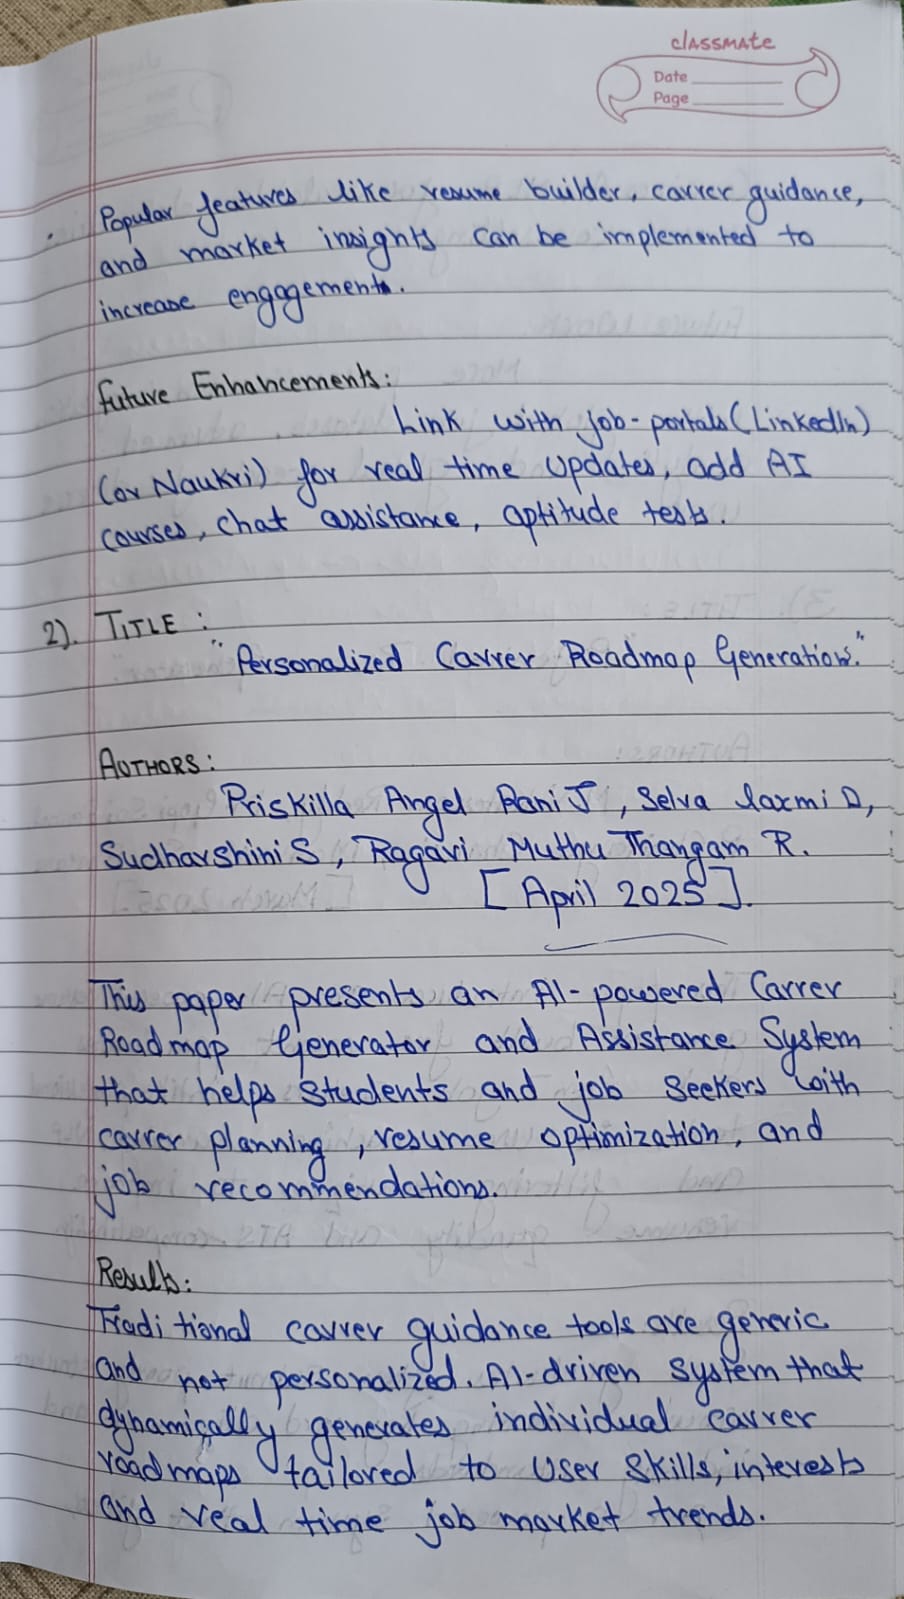 classmate
Date
Page
. Popular features like resume builder, carrer guidance,
and market insights can be implemented to
increase engagement.
Future Enhancements:
Link with job-portals (LinkedIn)
(or Naukri) for real time updates, add AI
courses, chat assistance, aptitude tests.
2). TITLE :
"Personalized Carrer Roadmap Generation."
AUTHORS :
Priskilla Angel Rani J, Selva laxmi D,
Sudharshini S, Ragavi Muthu Thangam R.
[April 2025].
This paper presents an AI-powered Carrer
Roadmap Generator and Assistance System
that helps students and job seekers with
carrer planning, resume optimization, and
job recommendations.
Results:
Traditional carrer guidance tools are generic
and not personalized. AI-driven system that
dynamically generates individual carrer
roadmaps tailored to user skills, interests
and real time job market trends.